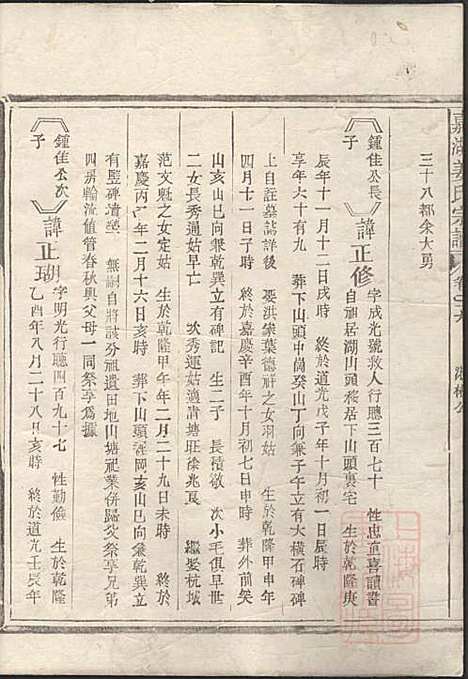 嘉湖姜氏宗譜
三十八都余大勇
鍾佳公長子
諱正修
字成光號救人行聽三百七十 性忠直喜讀書
自祖居湖山頭移居下山頭裏宅 生於乾隆庚
辰年十一月十二日戌時 終於道光戊子年十月初一日辰時
享年六十有九 葬下山頭中崗癸山丁向兼子午立有大橫石碑碑
上自註墓誌詳後 娶洪崇葉德之女羽姑 生於乾隆甲申年
四月十一日子時 終於嘉慶辛酉年十月初七日申時 葬外前矣
山亥山巳向兼乾巽立有碑記 生二子 長積敬 次小毛俱早世
二女長秀適姑早亡 次秀運姑適清塘旺徐兆艮 繼娶杭城
范文魁之女定姑 生於乾隆甲午年二月二十九日未時 終於
嘉慶丙年二月十六日亥時 葬下山頭岡亥山巳向兼乾巽立
有豎碑墳塋 無嗣自將該分祖遺田地山塘祖業併歸父祭享兄弟
四房輪流值管春秋與父母一同祭享為據
鍾佳公次子
諱正瑚
字明光行聽四百九十七 性勤儉 生於乾隆
乙酉年八月二十八日亥時 終於道光壬辰年